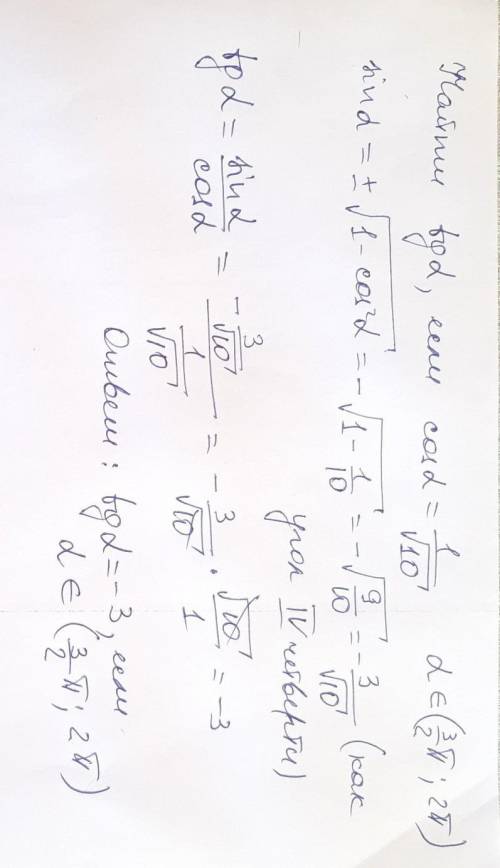 Найти tgα, если cosα = 1/√10 α ∈ (3/2 π; 2π)
sinα = ±√(1 - cos²α) = -√(1 - 1/10) = -√(9/10) = -3/√10 (как
угол IV четверти)
tgα = sinα/cosα = (-3/√10)/(1/√10) = -3/√10 · √10/1 = -3
Ответ: tgα = -3, если
α ∈ (3/2 π; 2π)